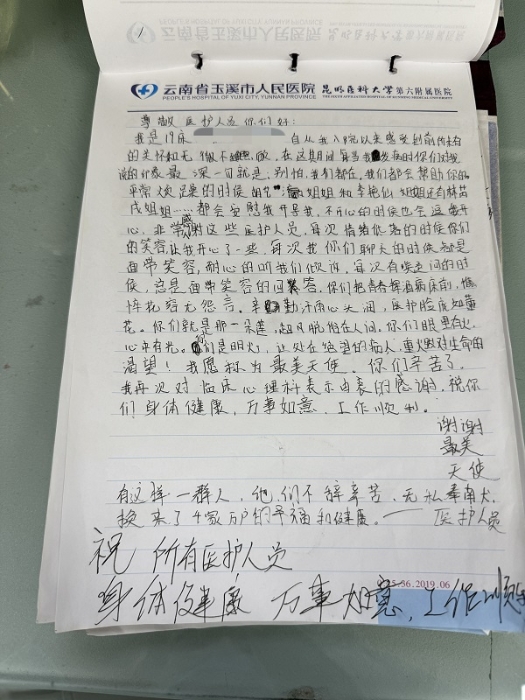 云南省玉溪市人民医院 昆明医科大学第六附属医院
PEOPLE'S HOSPITAL OF YUXI CITY, YUNNAN PROVINCE
尊敬的医护人员你们好:
我是19床 自从我入院以来感受到前所未有
的关怀和无微不至照顾,在这期间每当我发病时你们对我
说的印象最深一句就是,别怕,我们都在,我们都会帮助你的
平常烦躁的时候 姐姐和李艳仙姐姐还有林茜
成姐姐……都会安慰我开导我,不开心的时候也会逗我开
心,非常感谢这些医护人员,每次情绪低落的时候你们
的笑容让我开心了一些,每次我你们聊天的时候都是
面带笑容,耐心的听我们倾诉,每次有疑问的时
候,总是面带笑容的回答,你们把青春挥洒病床前,憔
悴花容无怨言。辛勤汗雨心头润,医护脸庞如莲
花。你们就是那一朵莲,超凡脱俗在人间,你们眼里有火,
心中有光。你们是明灯,让处在绝望的病人,重燃对生命的
渴望!我愿称为最美天使,你们辛苦了。
我再次对临床心理科表示由衷的感谢,祝你
们身体健康,万事如意,工作顺利。
谢谢
最美
天使
有这样一群人,他们不辞辛苦,无私奉献,
换来了千家万户的幸福和健康。——医护人员
祝 所有医护人员
56.2019.06
身体健康 万事如意,工作顺